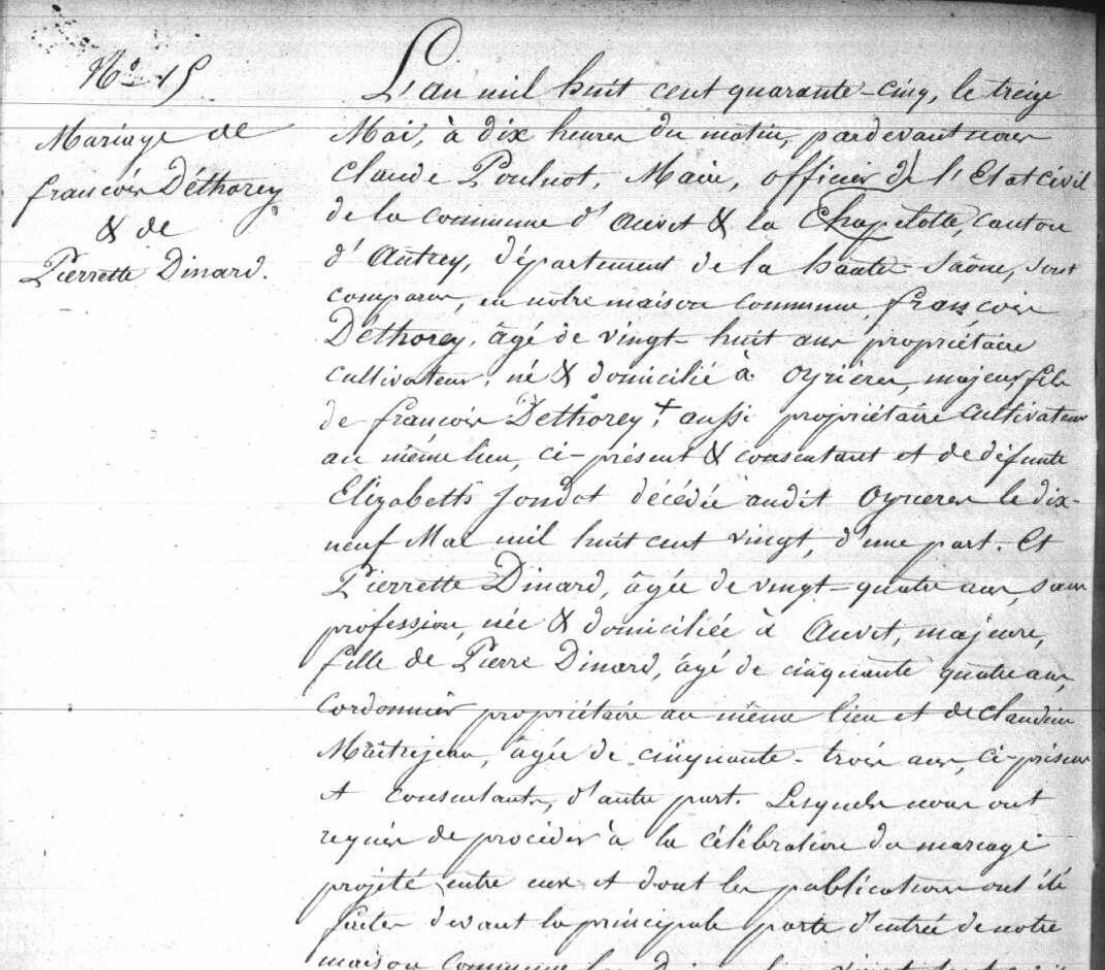 N° 15
Mariage de
françois Déthorey
& de
Pierrette Dinard.
L'an mil huit cent quarante-cinq, le treize
Mai, à dix heures du matin, pardevant nous
Claude Poulnot, Maire, officier de l'Etat civil
de la commune d'Auvet & la Chapelotte, canton
d'Autrey, département de la haute-Saône, sont
comparus, en notre maison commune, françois
Déthorey, âgé de vingt-huit ans propriétaire
cultivateur, né & domicilié à Oyrières, majeur, fils
de françois Dethorey, + aussi propriétaire cultivateur
au même lieu, ci-présent & consentant et de défunte
Elizabeth Jondot décédée audit Oyrieres le dix-
neuf Mai mil huit cent vingt, d'une part. Et
Pierrette Dinard, âgée de vingt-quatre ans, sans
profession, née & domiciliée à Auvet, majeure,
fille de Pierre Dinard, âgé de cinquante quatre ans,
Cordonnier propriétaire au même lieu et de Claudine
Maîtrejean, âgée de cinquante-trois ans, ci-présens
et consentants, d'autre part. Lesquels nous ont
requis de procéder à la célébration du mariage
projeté entre eux et dont les publications ont été
faites devant la principale porte d'entrée de notre
maison commune